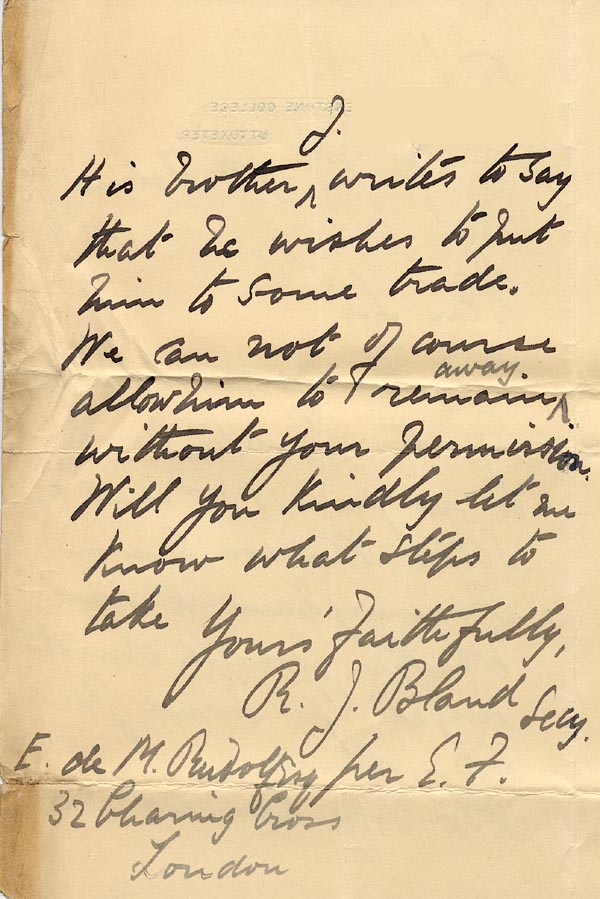 ENSTONE COLLEGE,
UTTOXETER.
J.
His brother ‸ writes to say
that he wishes to put
him to some trade.
We can not of course
away
allow him to remain ‸
without your permission.
Will you kindly let me
know what steps to
take
Yours faithfully,
R. J. Bland Secy.
E. de M. Rudolf Esq per E. F.
32 Charing Cross
London